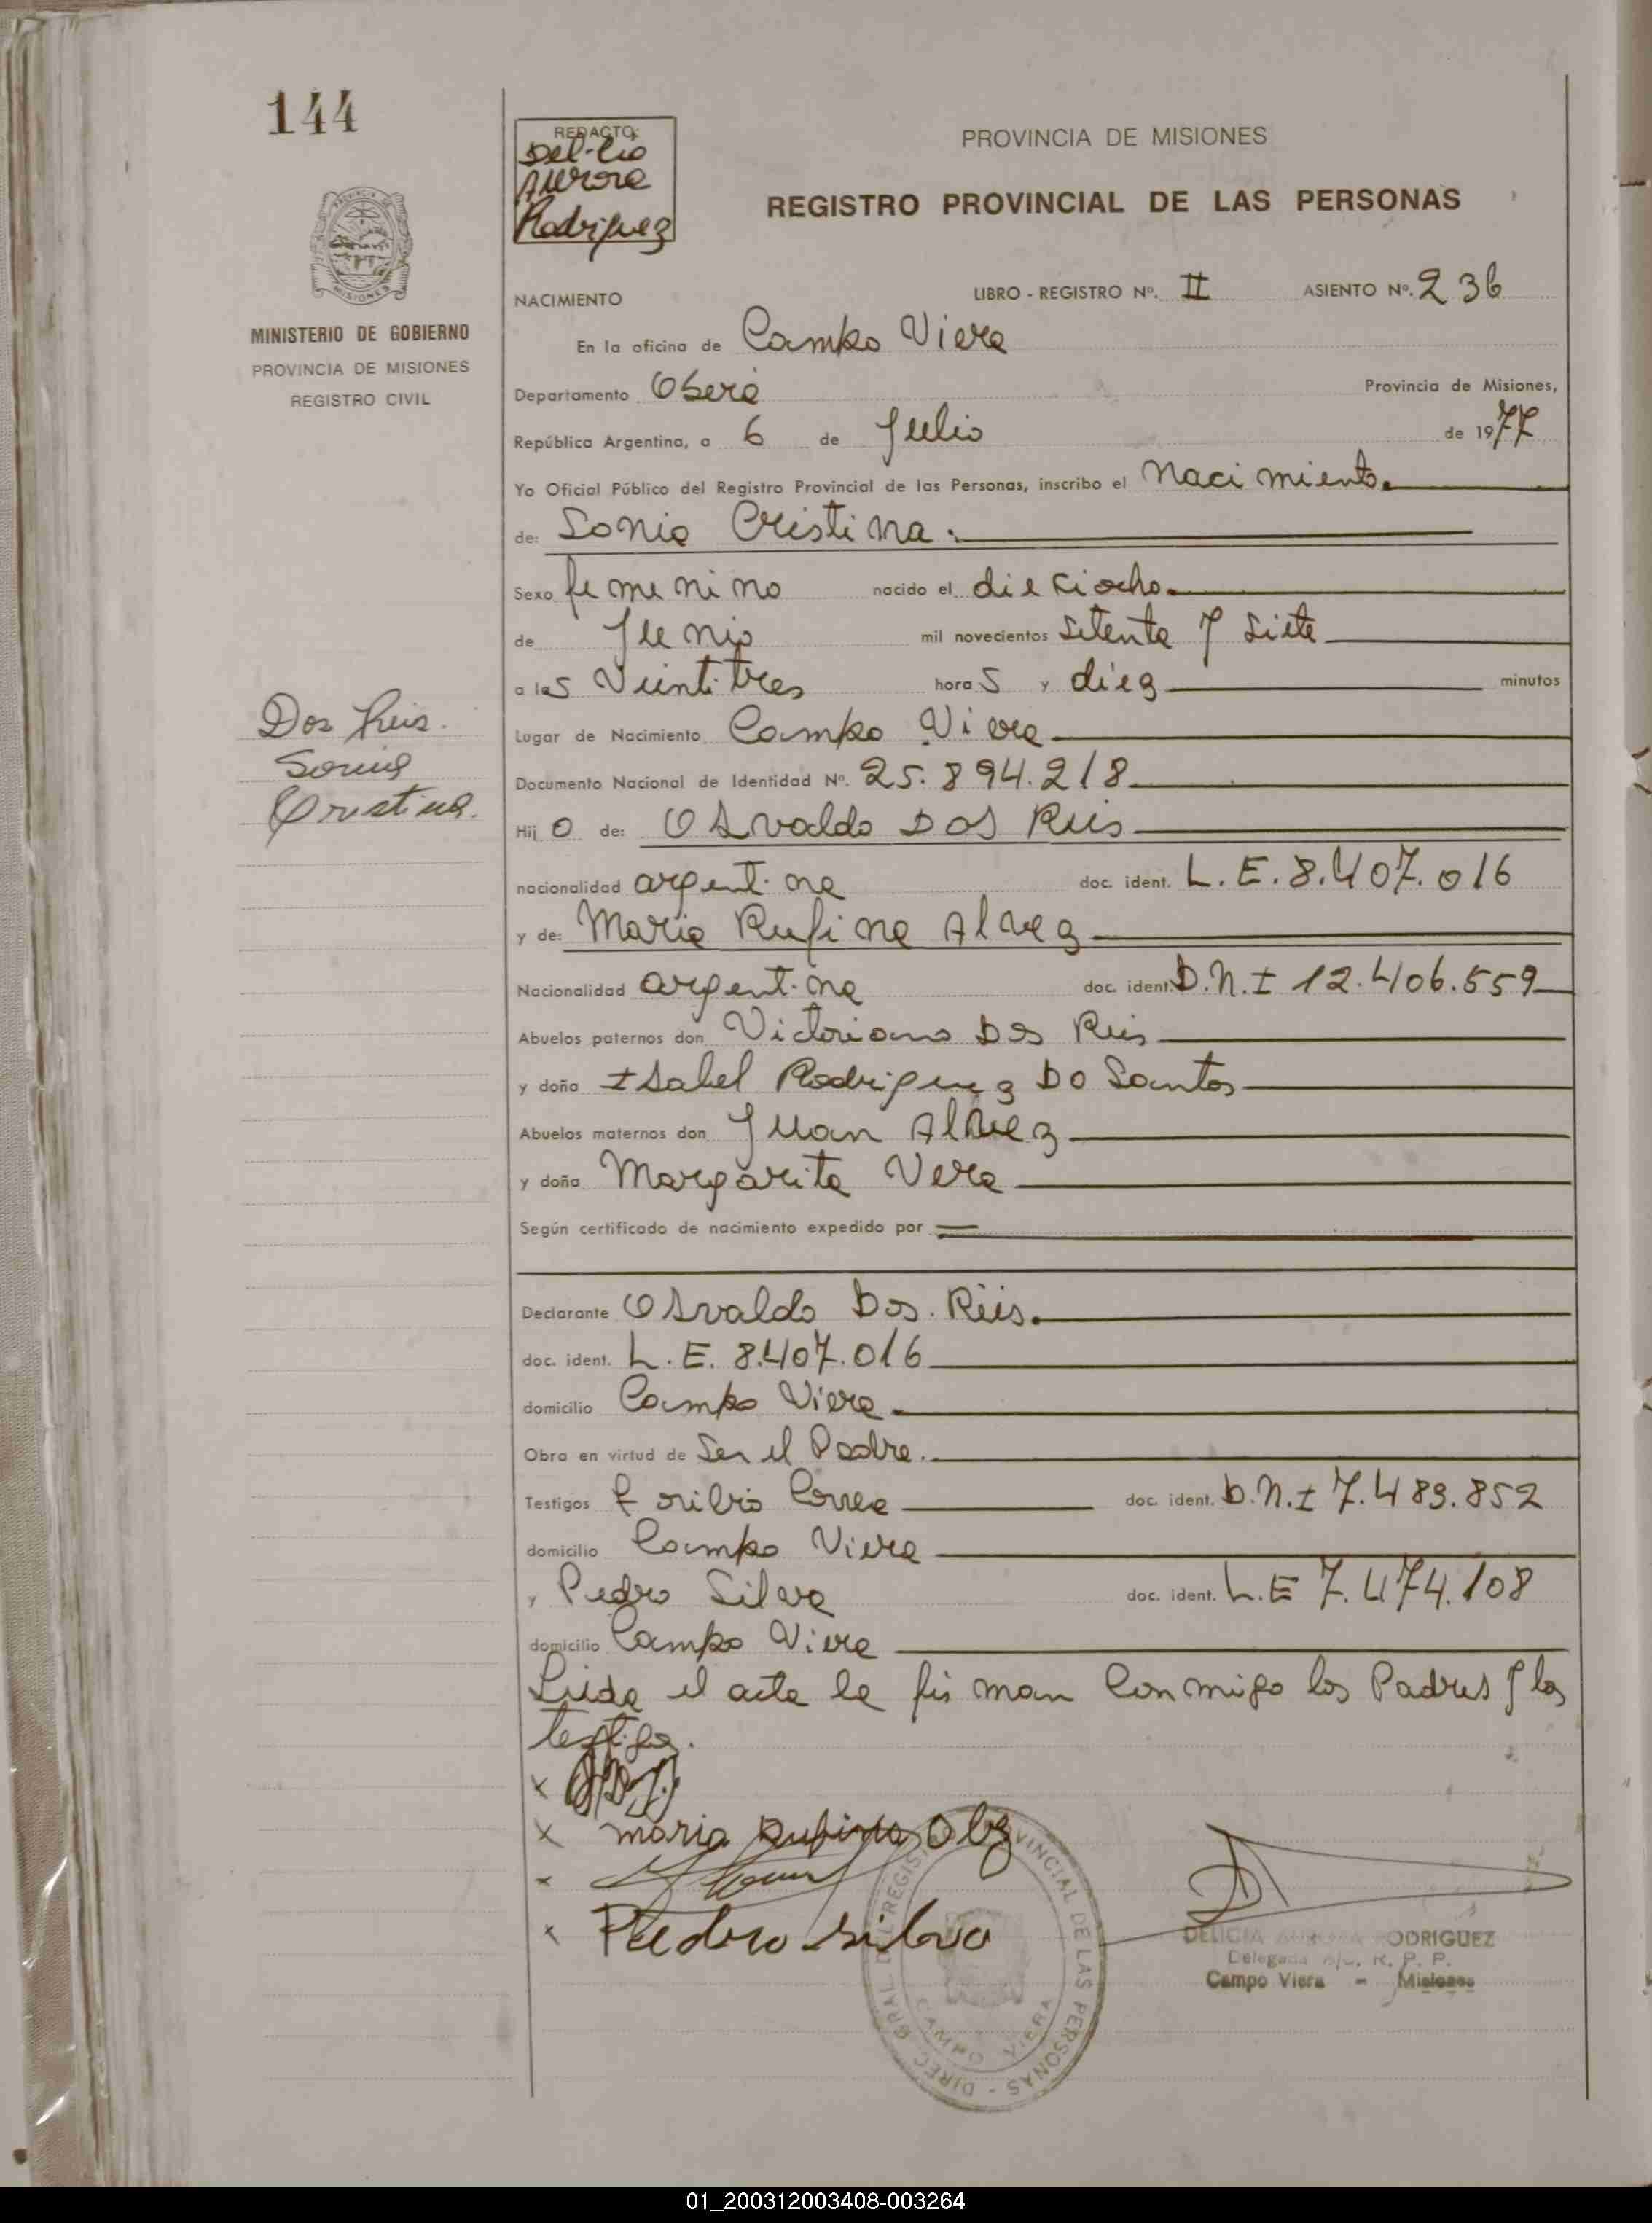 144
REDACTO:
Delicia
Aurora
Rodriguez
PROVINCIA DE MISIONES
REGISTRO PROVINCIAL DE LAS PERSONAS
MISIONES
MINISTERIO DE GOBIERNO
PROVINCIA DE MISIONES
REGISTRO CIVIL
NACIMIENTO
LIBRO - REGISTRO Nº. II ASIENTO Nº. 236
En la oficina de Campo Viera
Departamento Oberá Provincia de Misiones,
República Argentina, a 6 de Julio de 1977
Yo Oficial Público del Registro Provincial de las Personas, inscribo el Nacimiento.
de: Sonia Cristina.
Sexo femenino nacido el dieciocho.
de Junio mil novecientos Setenta y Siete
a las Veintitres horas y diez minutos
Dos Reis.
Sonia
Cristina.
Lugar de Nacimiento Campo Viera
Documento Nacional de Identidad Nº. 25.894.218
Hijo de: Osvaldo Dos Reis
nacionalidad argentina doc. ident. L.E. 8.407.016
y de: Maria Rufina Alvez
Nacionalidad argentina doc. ident. D.N.I 12.406.559
Abuelos paternos don Victoriano Dos Reis
y doña Isabel Rodriguez Do Santos
Abuelos maternos don Juan Alvez
y doña Margarita Vera
Según certificado de nacimiento expedido por
Declarante Osvaldo Dos. Reis.
doc. ident. L.E. 8.407.016
domicilio Campo Viera
Obra en virtud de Ser el Padre.
Testigos Toribio Correa doc. ident. D.N.I 7.483.852
domicilio Campo Viera
y Pedro Silva doc. ident. L.E 7.474.108
domicilio Campo Viera
Leida el acta la firman Conmigo los Padres y los
testigos.
x
x maria Rufina Alvz
x
x Pedro Silva
DIREC. GRAL. DEL REGISTRO PROVINCIAL DE LAS PERSONAS
CAMPO VIERA
DELICIA AURORA RODRIGUEZ
Delegada A/C. R. P. P.
Campo Viera - Misiones
01_200312003408-003264